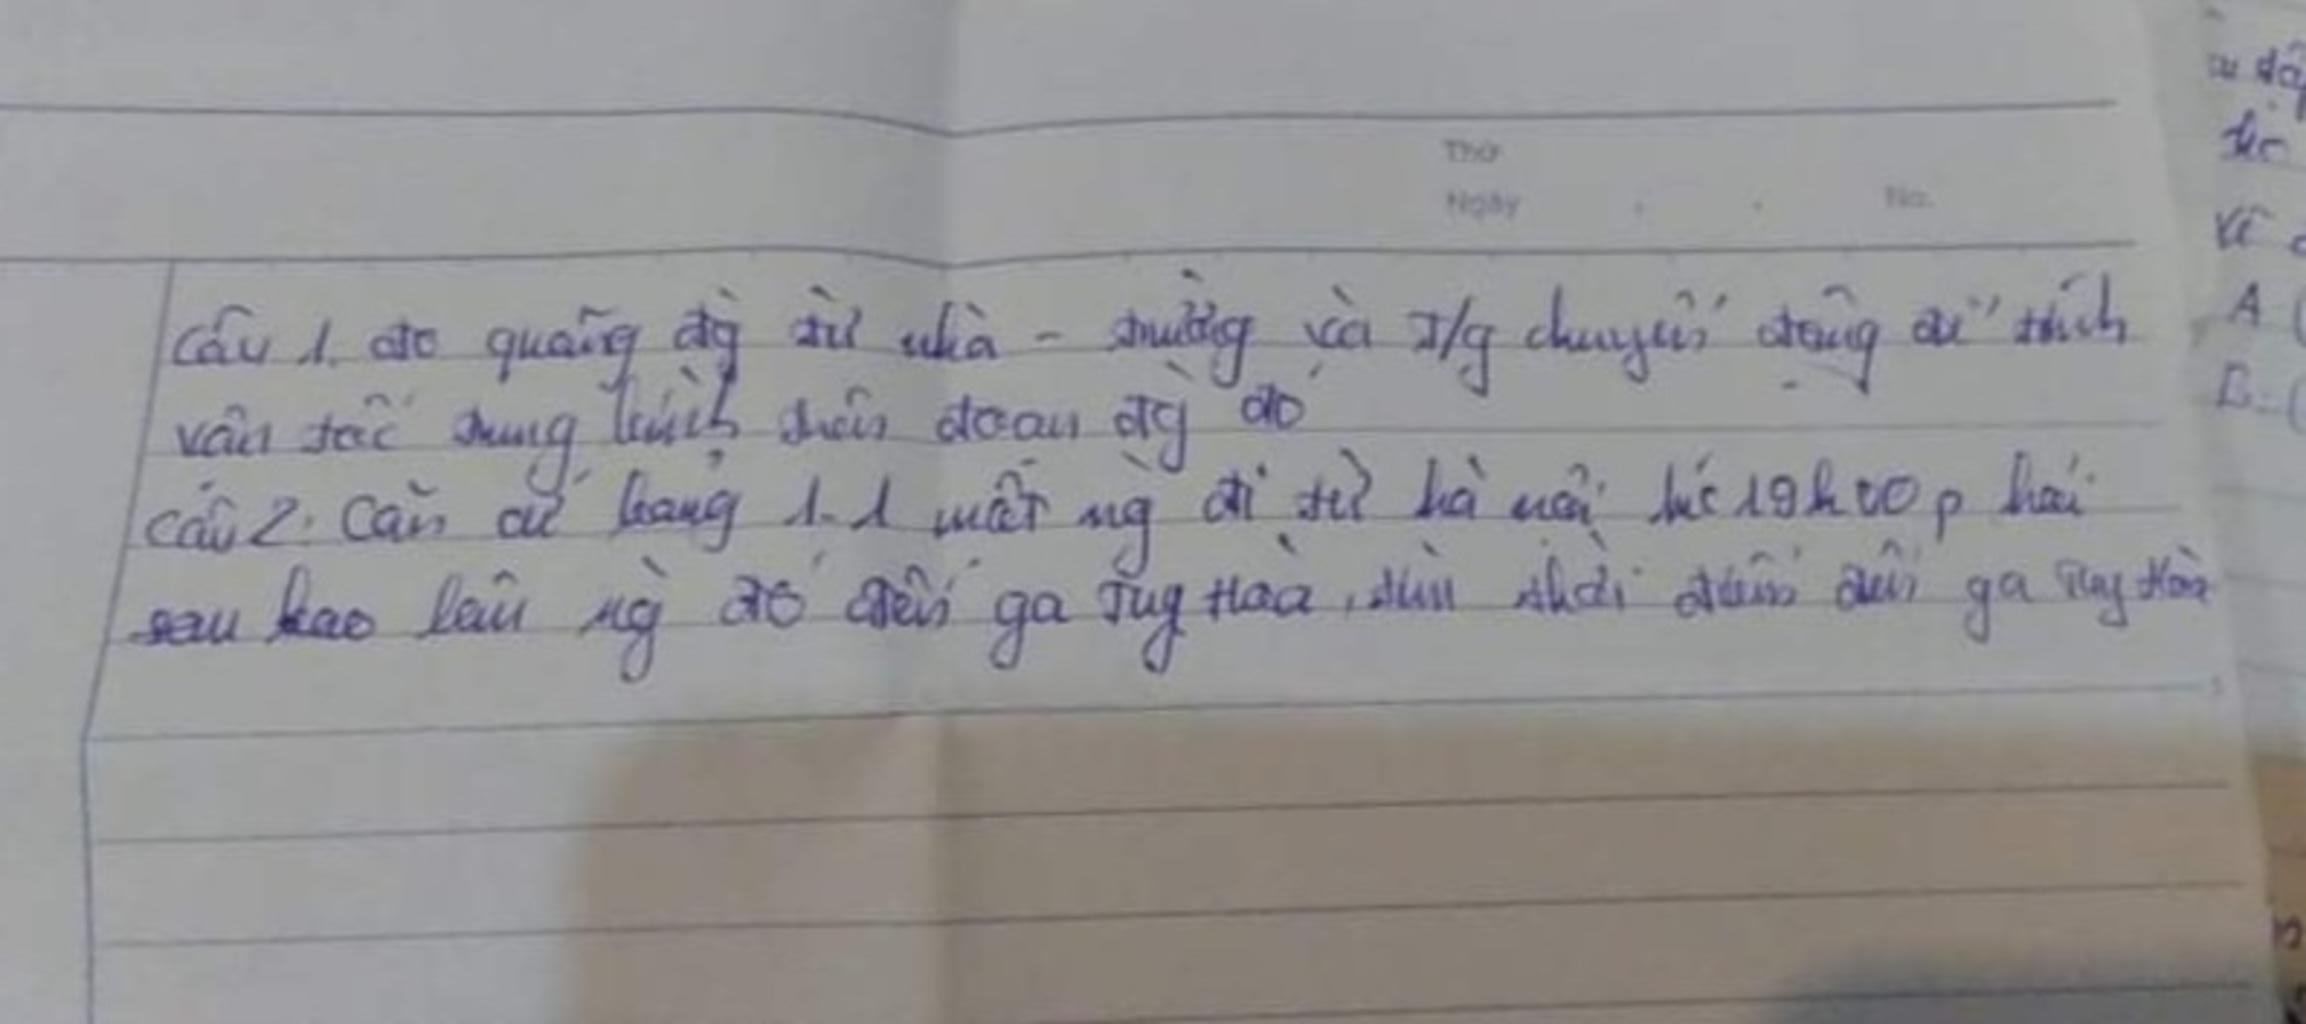 Thứ
Ngày No.
Câu 1. đo quãng đg từ nhà - trường và T/g chuyển động để tính
vận tốc trung bình trên đoạn đg đó
Câu 2: Căn cứ bảng 1.1 một ng đi từ hà nội lúc 19h00p hỏi
sau bao lâu ng đó đến ga Tuy Hoà, tìm thời điểm đến ga Tuy Hoà
A (
B. (